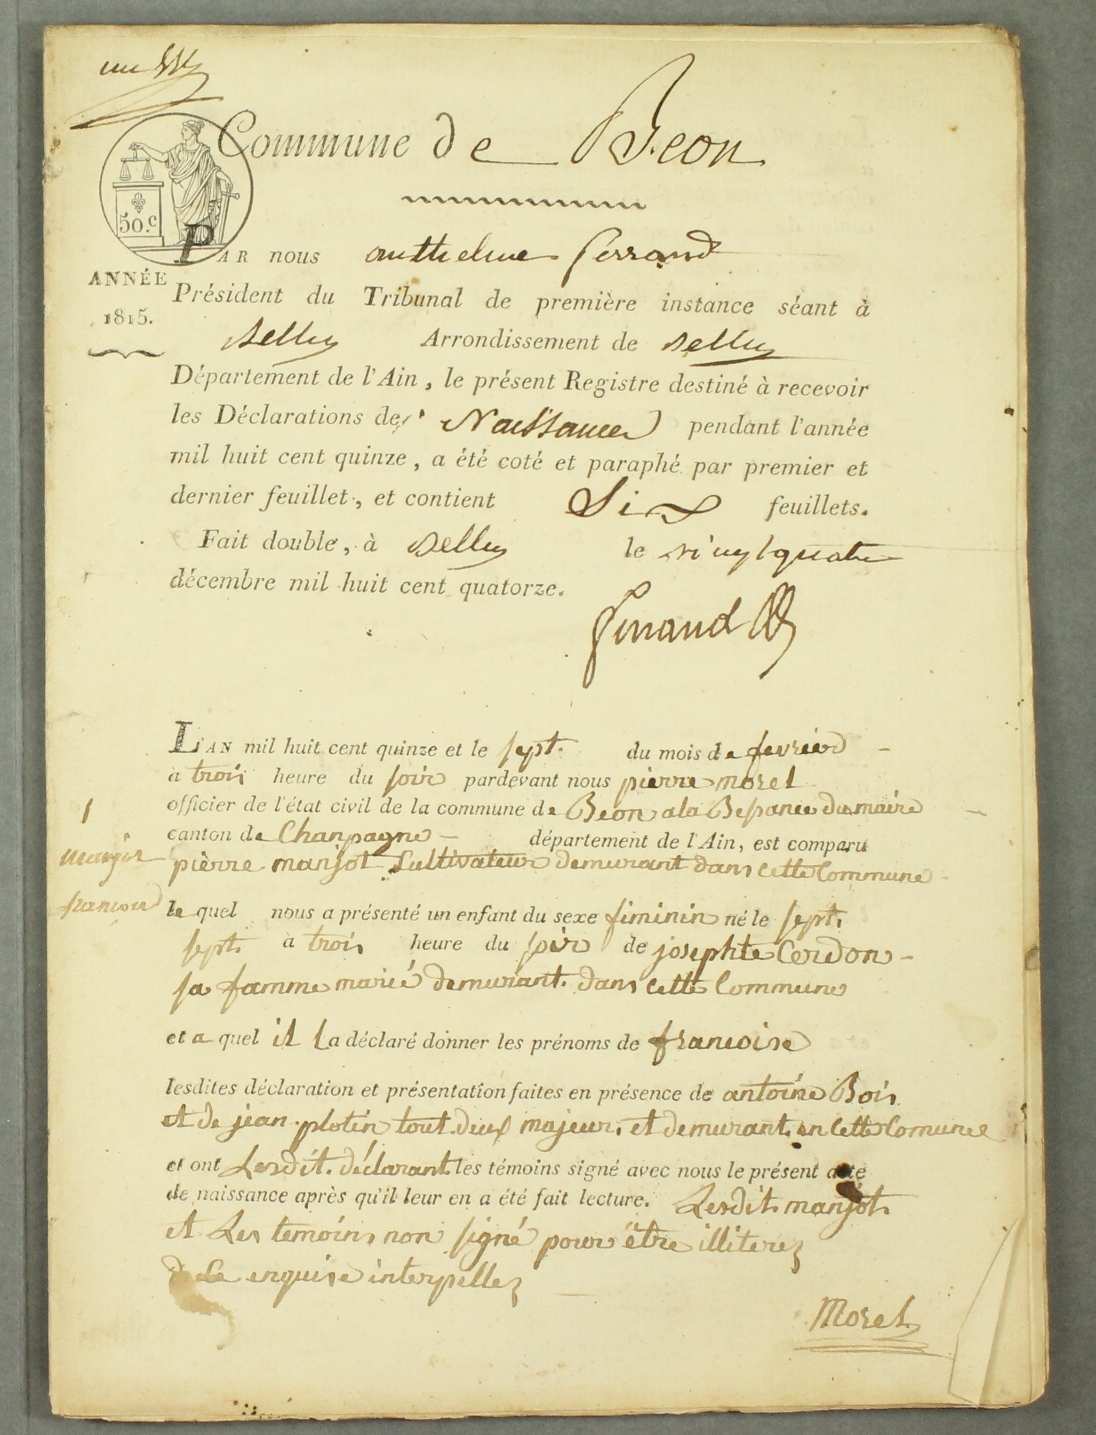 Commune de Beon
50.c
PAR nous anthelme ferrand
ANNÉE
1815.
Président du Tribunal de première instance séant à
Belley Arrondissement de Belley
Département de l'Ain, le présent Registre destiné à recevoir
les Déclarations de Naissances pendant l'année
mil huit cent quinze, a été coté et paraphé par premier et
dernier feuillet, et contient Six feuillets.
Fait double, à Belley le vingt quatre
décembre mil huit cent quatorze.
L'AN mil huit cent quinze et le sept. du mois de fevrier
à trois heure du soir pardevant nous pierre morel
officier de l'état civil de la commune de Beon a la du maire
canton de Chanpagne département de l'Ain, est comparu
pierre manjot Cultivateur demurant dans cette Commune
1
manjot
francoise
le quel nous a présenté un enfant du sexe fiminin né le sept.
sept. à trois heure du soir de josephte Cerdon
sa famme marié demurant. dans cette Commune
et a quel il La déclaré donner les prénoms de francoise
lesdites déclaration et présentation faites en présence de antoine Bois
et de jean plotin tout deux majeur, et demurant en Cette Comune
et ont Lesdit. déclarant. les témoins signé avec nous le présent acte
de naissance après qu'il leur en a été fait lecture. Lesdit. manjot
et Les temoins non signé pour être illiterez
de Ce enquise interpellez
Morel